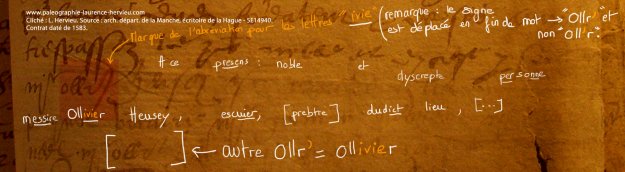 www.paleographie-laurence-hervieu.com
Cliché : L. Hervieu. Source : arch. départ. de la Manche, écritoire de la Hague - 5E14940.
Contrat daté de 1583.
Marque de l'abréviation pour les lettres "ivie" (remarque : le signe
est déplacé en fin de mot → "Ollr'" et
non "Oll'r")
A ce presens : noble et dyscrepte personne
messire Ollivier Heusey, escuier, [prebtre] dudict lieu, [...]
[ ] ← autre Ollr' = Ollivier